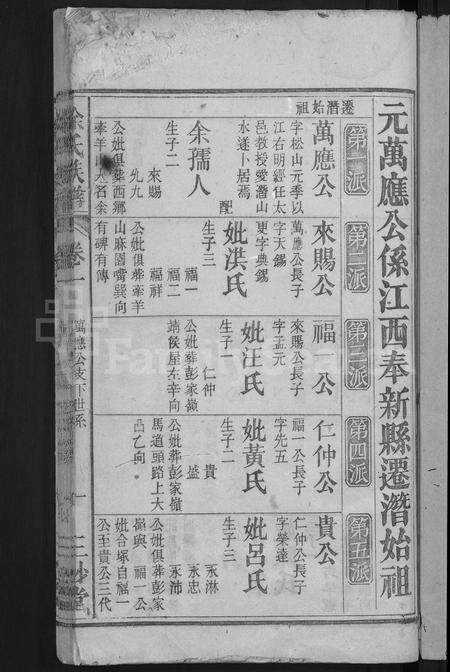 元萬應公係江西奉新縣遷潛始祖
第一派
第二派
第三派
第四派
第五派
遷潛始祖
萬應公
字松山元季以
江右明經任太
邑教授愛潛山
水遂卜居焉
配
余孺人
生子二
來賜
九九
公妣俱葬西鄉
來賜公
萬應公長子
字天錫
更字典錫
妣洪氏
生子三
福一
福二
福祥
公妣俱葬牽羊
山麻園嘴巽向
有碑有傳
福 公
來賜公長子
字孟元
妣汪氏
生子一
仁仲
公妣葬彭家嶺
端侯屋左辛向
仁仲公
福一公長子
字先五
妣黃氏
生子二
貴
盛
公妣葬彭家嶺
馬道頭路上大
凸乙向
貴公
仁仲公長子
字榮達
妣呂氏
生子三
永淋
永忠
永沛
公妣俱葬彭家
嶺與福一公
妣合塚自福一
公至貴公三代
余氏族譜
卷一
萬應公支下世系
一